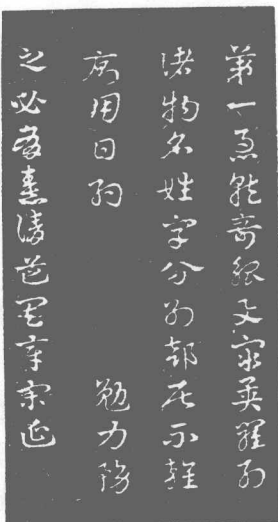 第一急就奇觚与众異羅列
诸物名姓字分别部居不雜
廁用日約　　勉力務
之必有憙請道其章宋延